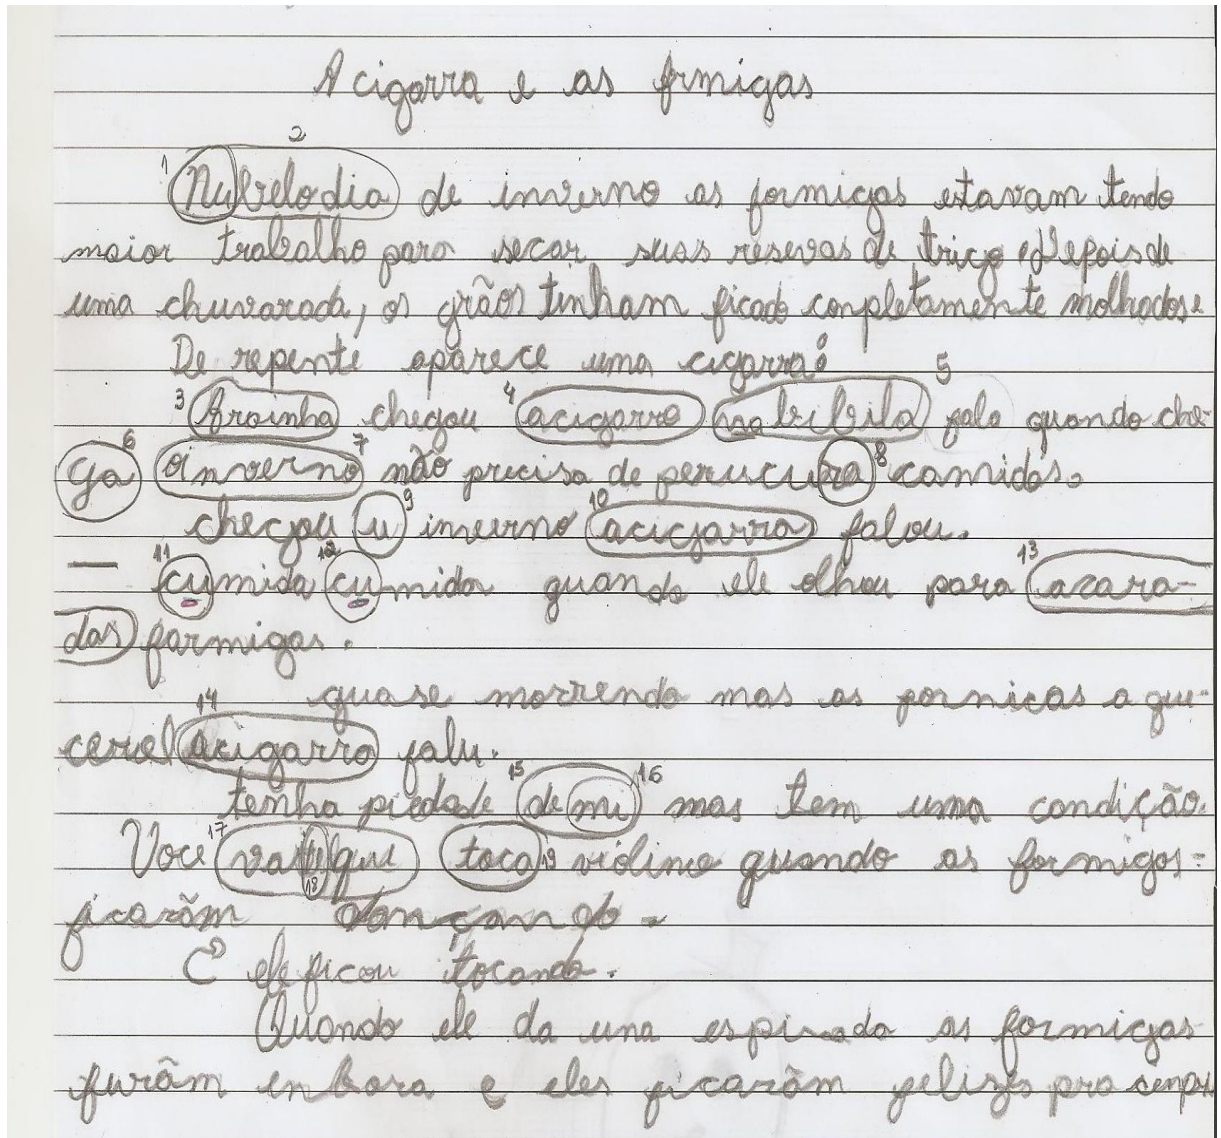 A cigarra e as frmigas
1 2
Nubelodia de inverno as formigas estavam tendo
maior trabalho para secar suas resevas de trigo. Depois de
uma chuvarada, os grãos tinham ficado conpletamente molhados.
De repente aparece uma cigarra: 5
3 Arainha chegou 4 acigarra fala quando che-
ga 6 oinverno 7 não precisa de ra 8 comidas.
chegou u 9 inverno 10 acigarra falou.
— 11 cumida 12 cumida quando ele olhou para 13 acara-
das formigas.
quase morrendo mas as formicas a que-
14 acigarra falu.
tenha piedade 15 de mi 16 mas tem uma condição.
Voce 17 18 toca 19 violino quando as formigas-
ficarãm dançando.
E ele ficou tocando.
Quando ele da uma espirada as formigas
furãm enbora e eles ficarãm felizis pra senpre